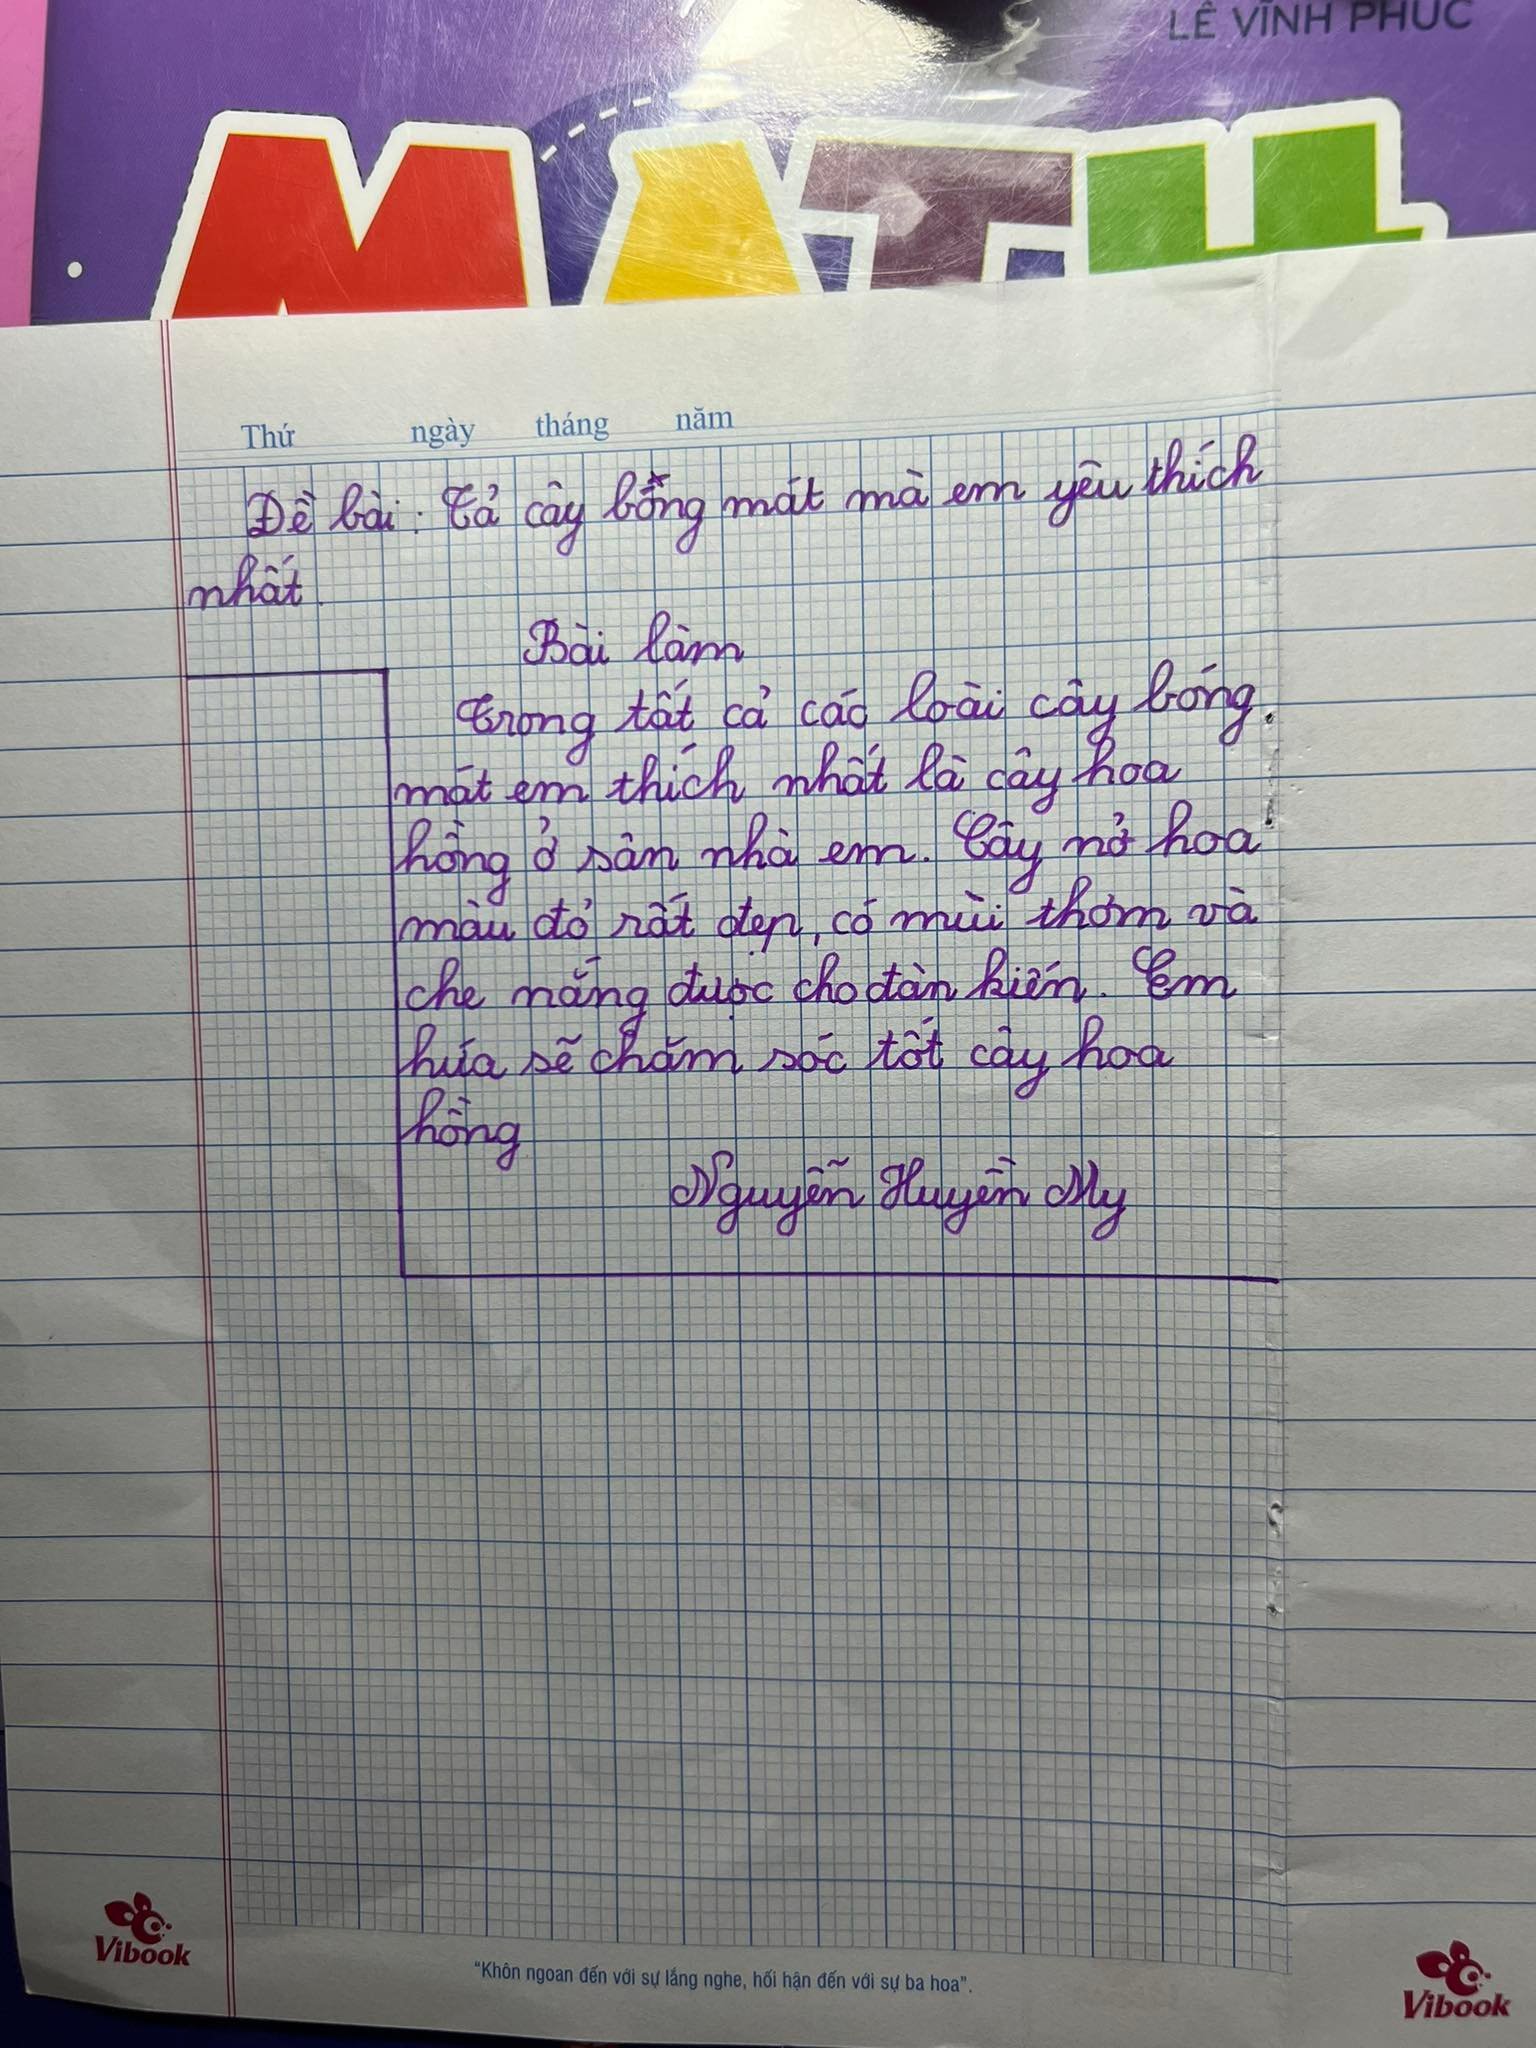 LÊ VĨNH PHÚC
MATH
Thứ ngày tháng năm
Đề bài: Tả cây bóng mát mà em yêu thích
nhất.
Bài làm
Trong tất cả các loài cây bóng
mát em thích nhất là cây hoa
hồng ở sân nhà em. Cây nở hoa
màu đỏ rất đẹp, có mùi thơm và
che nắng được cho đàn kiến. Em
hứa sẽ chăm sóc tốt cây hoa
hồng
Nguyễn Huyền My
Vibook
"Khôn ngoan đến với sự lắng nghe, hối hận đến với sự ba hoa".
Vibook